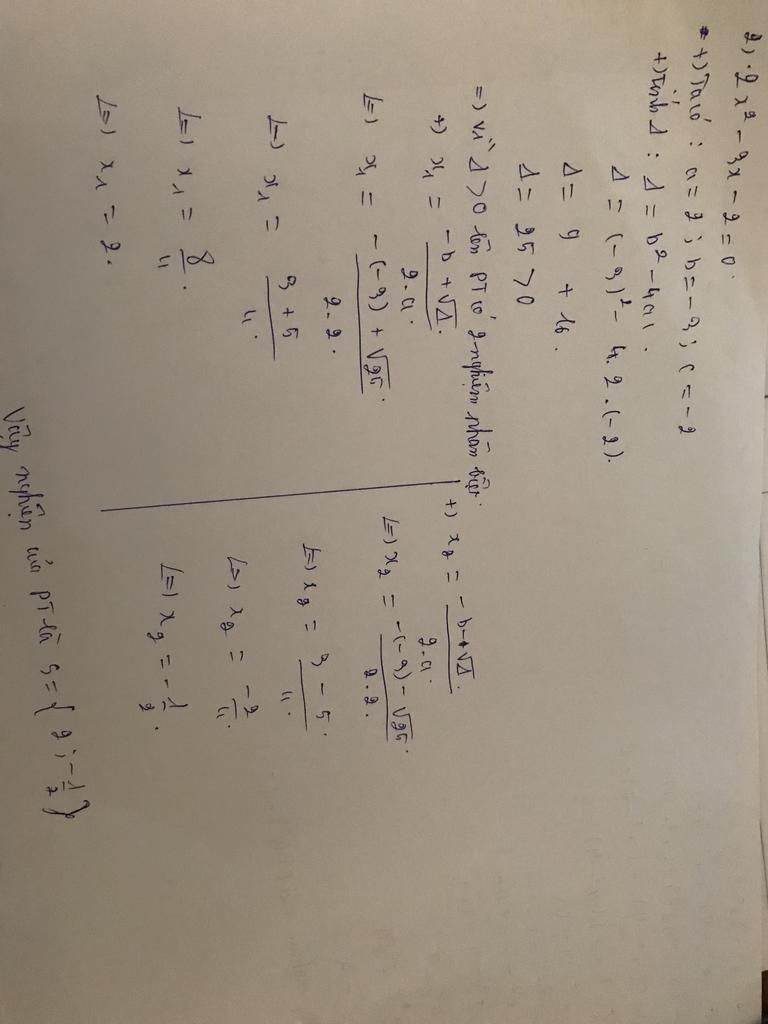 2) 2x² - 3x - 2 = 0.
+) Ta có : a = 2 ; b = -3 ; c = -2
+) Tính Δ : Δ = b² - 4ac.
Δ = (-3)² - 4.2.(-2).
Δ = 9 + 16.
Δ = 25 > 0
=) Vì Δ > 0 nên PT có 2 nghiệm phân biệt.
+) x₁ = (-b + √Δ)/(2.a).
L=) x₁ = (-(-3) + √25)/(2.2).
L=) x₁ = (3 + 5)/4.
L=) x₁ = 8/4.
L=) x₁ = 2.
+) x₂ = (-b - √Δ)/(2.a).
L=) x₂ = (-(-3) - √25)/(2.2).
L=) x₂ = (3 - 5)/4.
L=) x₂ = -2/4.
L=) x₂ = -1/2.
Vậy nghiệm của PT là S = { 2 ; -1/2 }